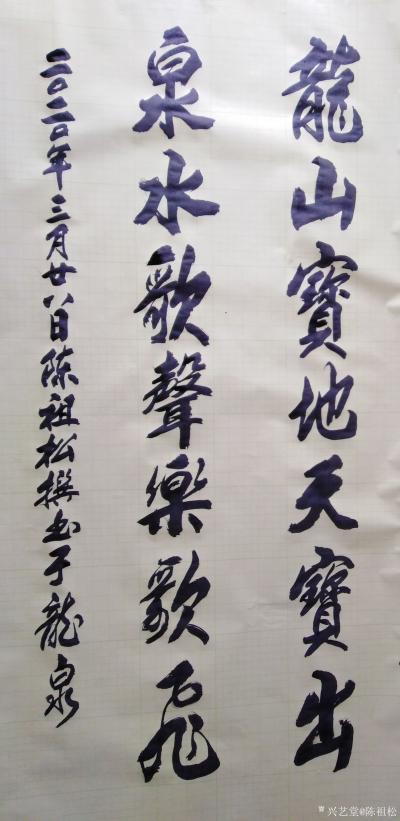 龍山寶地天寶出
泉水歌聲樂歌飛
二〇二〇年三月廿八日陈祖松撰书于龍泉
兴艺堂@陈祖松